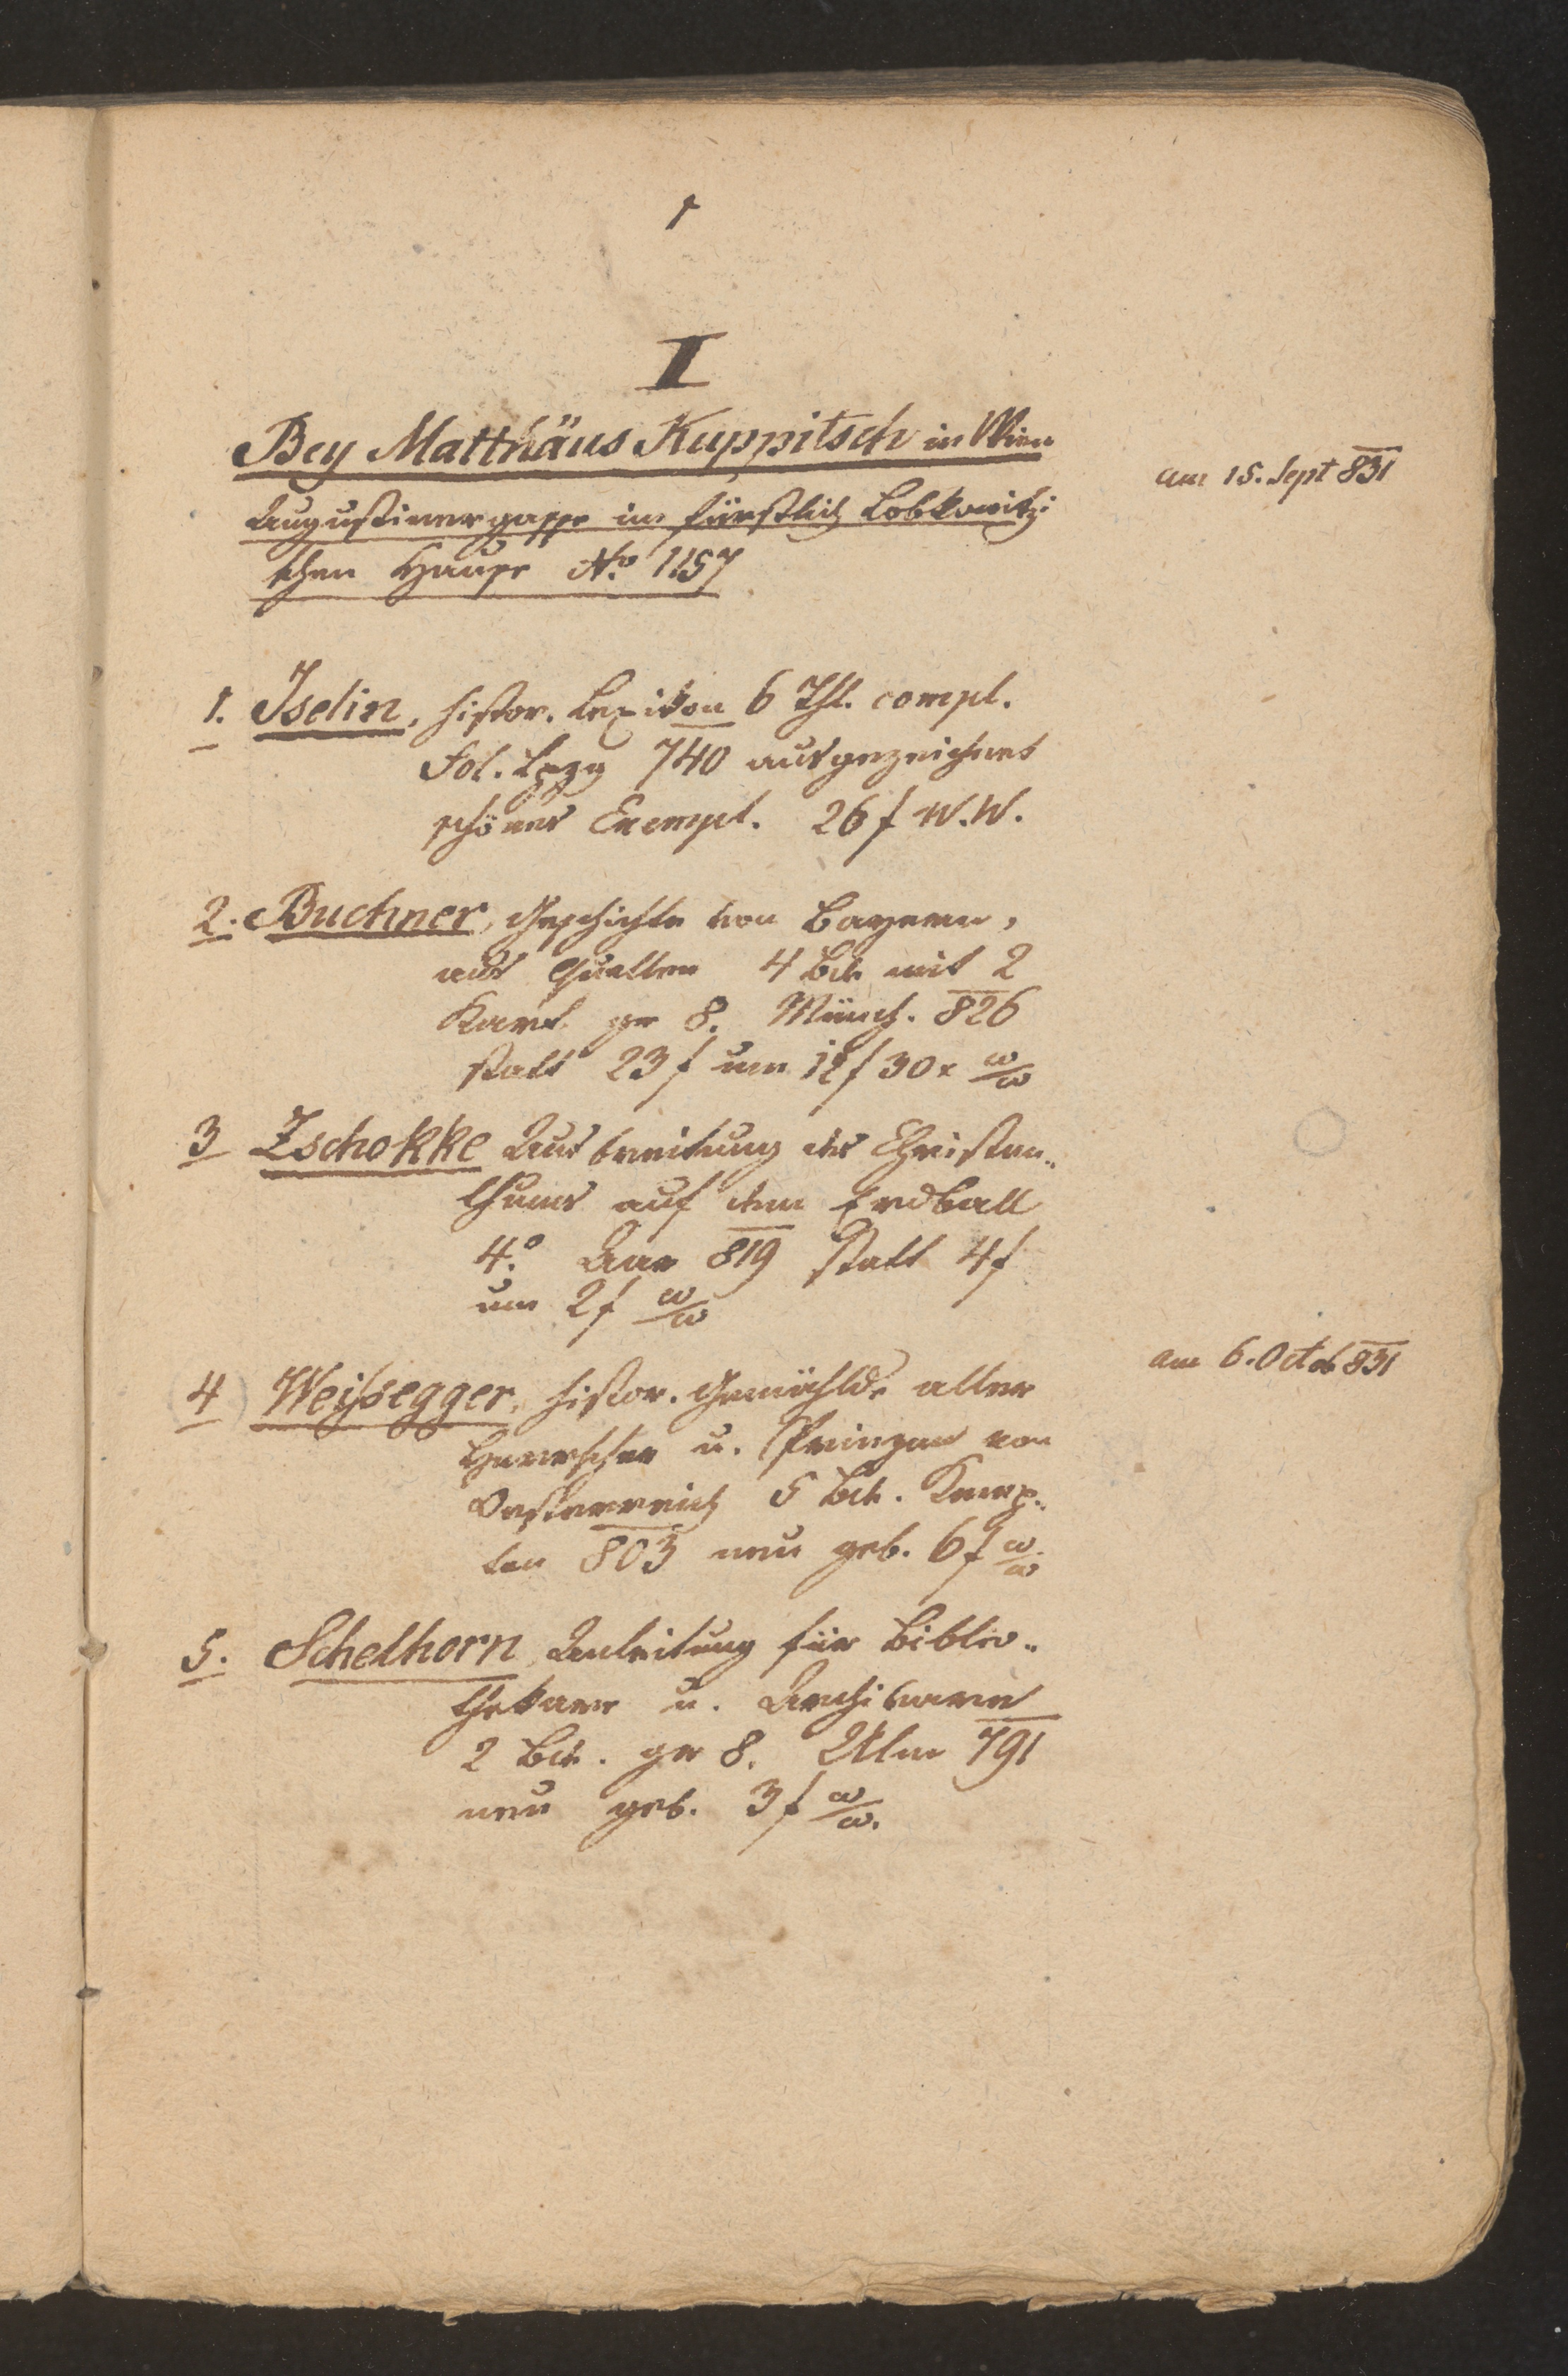 1
I
Bey Matthäus Kuppitsch in Wien
am 15. Sept 831
Augustinergasse im fürstlich Lobkowitzi
schen Hause No. 1157
1. Iselin, histor. Lexikon 6 Thl. compl.
Fol. Lpzg 740 ausgezeichnet
schönes Exempl. 26 f W.W.
2. Buchner, Geschichte von Bayern,
aus Quellen 4 Bde mit 2
Kart. gr 8. Münch. 826
statt 23 f um 12 f 30 x w/w
3 Zschokke Ausbreitung des Christen„
thums auf dem Erdball
4.° Aar 819 statt 4 f
um 2 f w/w
am 6. Octob 831
4 Weissegger, histor. Gemählde aller
Herrscher u. Prinzen von
Oesterreich 5 Bde. Kemp„
ten 803 neu geb. 6 f w/w
5. Schelhorn, Anleitung für Biblio„
thekare u. Archivare
2 Bde. gr 8. Ulm 791
neu geb. 3 f w/w.